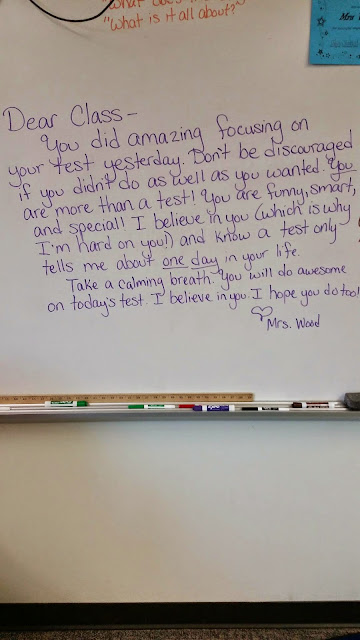 "What does
"What is it all about?"
Mrs
Dear Class-
You did amazing focusing on
your test yesterday. Don't be discouraged
if you didn't do as well as you wanted. You
are more than a test! You are funny, smart,
and special! I believe in you (which is why
I'm hard on you!) and know a test only
tells me about one day in your life.
Take a calming breath. You will do awesome
on today's test. I believe in you. I hope you do too!
Mrs. Wood